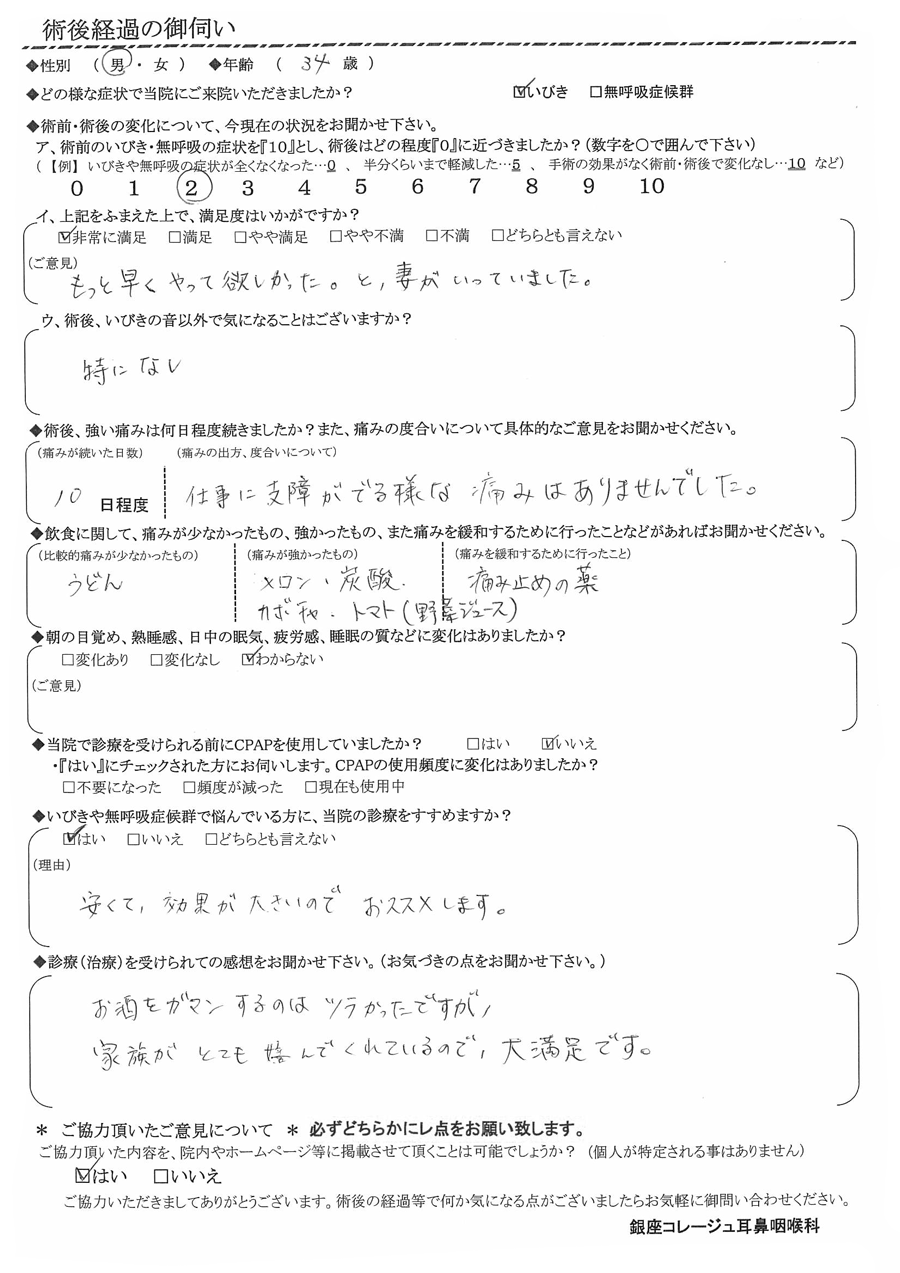 術後経過の御伺い
◆性別 （ 男 ・ 女 ） ◆年齢 （ 34 歳 ）
◆どの様な症状で当院にご来院いただきましたか？ ☑いびき □無呼吸症候群
◆術前・術後の変化について、今現在の状況をお聞かせ下さい。
ア、術前のいびき・無呼吸の症状を『10』とし、術後はどの程度『0』に近づきましたか？（数字を〇で囲んで下さい）
（【例】 いびきや無呼吸の症状が全くなくなった…0 、 半分くらいまで軽減した…5 、 手術の効果がなく術前・術後で変化なし…10 など）
0 1 2 3 4 5 6 7 8 9 10
イ、上記をふまえた上で、満足度はいかがですか？
☑非常に満足 □満足 □やや満足 □やや不満 □不満 □どちらとも言えない
（ご意見）
もっと早くやって欲しかった。と、妻がいっていました。
ウ、術後、いびきの音以外で気になることはございますか？
特になし
◆術後、強い痛みは何日程度続きましたか？また、痛みの度合いについて具体的なご意見をお聞かせください。
（痛みが続いた日数） （痛みの出方、度合いについて）
10 日程度 仕事に支障がでる様な痛みはありませんでした。
◆飲食に関して、痛みが少なかったもの、強かったもの、また痛みを緩和するために行ったことなどがあればお聞かせください。
（比較的痛みが少なかったもの） （痛みが強かったもの） （痛みを緩和するために行ったこと）
うどん メロン・炭酸・ 痛み止めの薬
カボチャ・トマト（野菜ジュース）
◆朝の目覚め、熟睡感、日中の眠気、疲労感、睡眠の質などに変化はありましたか？
□変化あり □変化なし ☑わからない
（ご意見）
◆当院で診療を受けられる前にCPAPを使用していましたか？ □はい ☑いいえ
・『はい』にチェックされた方にお伺いします。CPAPの使用頻度に変化はありましたか？
□不要になった □頻度が減った □現在も使用中
◆いびきや無呼吸症候群で悩んでいる方に、当院の診療をすすめますか？
☑はい □いいえ □どちらとも言えない
（理由）
安くて、効果が大きいのでおススメします。
◆診療（治療）を受けられての感想をお聞かせ下さい。（お気づきの点をお聞かせ下さい。）
お酒をガマンするのはツラかったですが、
家族がとても嬉んでくれているので、大満足です。
＊ ご協力頂いたご意見について ＊ 必ずどちらかにレ点をお願い致します。
ご協力頂いた内容を、院内やホームページ等に掲載させて頂くことは可能でしょうか？ （個人が特定される事はありません）
☑はい □いいえ
ご協力いただきましてありがとうございます。術後の経過等で何か気になる点がございましたらお気軽に御問い合わせください。
銀座コレージュ耳鼻咽喉科